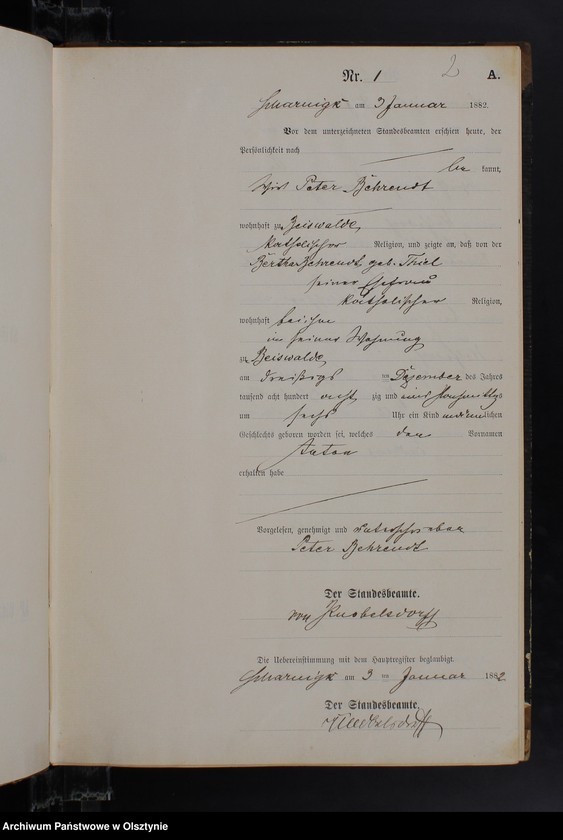 Nr. 1
2
A.
Scharnigk am 3 Januar 1882.
Vor dem unterzeichneten Standesbeamten erschien heute, der
Persönlichkeit nach
be kannt,
Wirt Peter Behrendt
wohnhaft zu Beiswalde,
katholischer Religion, und zeigte an, daß von der
Bertha Behrendt geb. Thiel
seiner Ehefrau
katholischer Religion,
wohnhaft bei ihm
in seiner Wohnung
zu Beiswalde
am dreißigsten Dezember des Jahres
tausend acht hundert acht zig und eins Nachmittags
um sechs Uhr ein Kind männlichen
Geschlechts geboren worden sei, welches den Vornamen
Anton
erhalten habe
Vorgelesen, genehmigt und unterschrieben
Peter Behrendt
Der Standesbeamte.
von Knobelsdorff
Die Uebereinstimmung mit dem Hauptregister beglaubigt.
Scharnigk am 3 ten Januar 1882
Der Standesbeamte.
Knobelsdorff
Archiwum Państwowe w Olsztynie